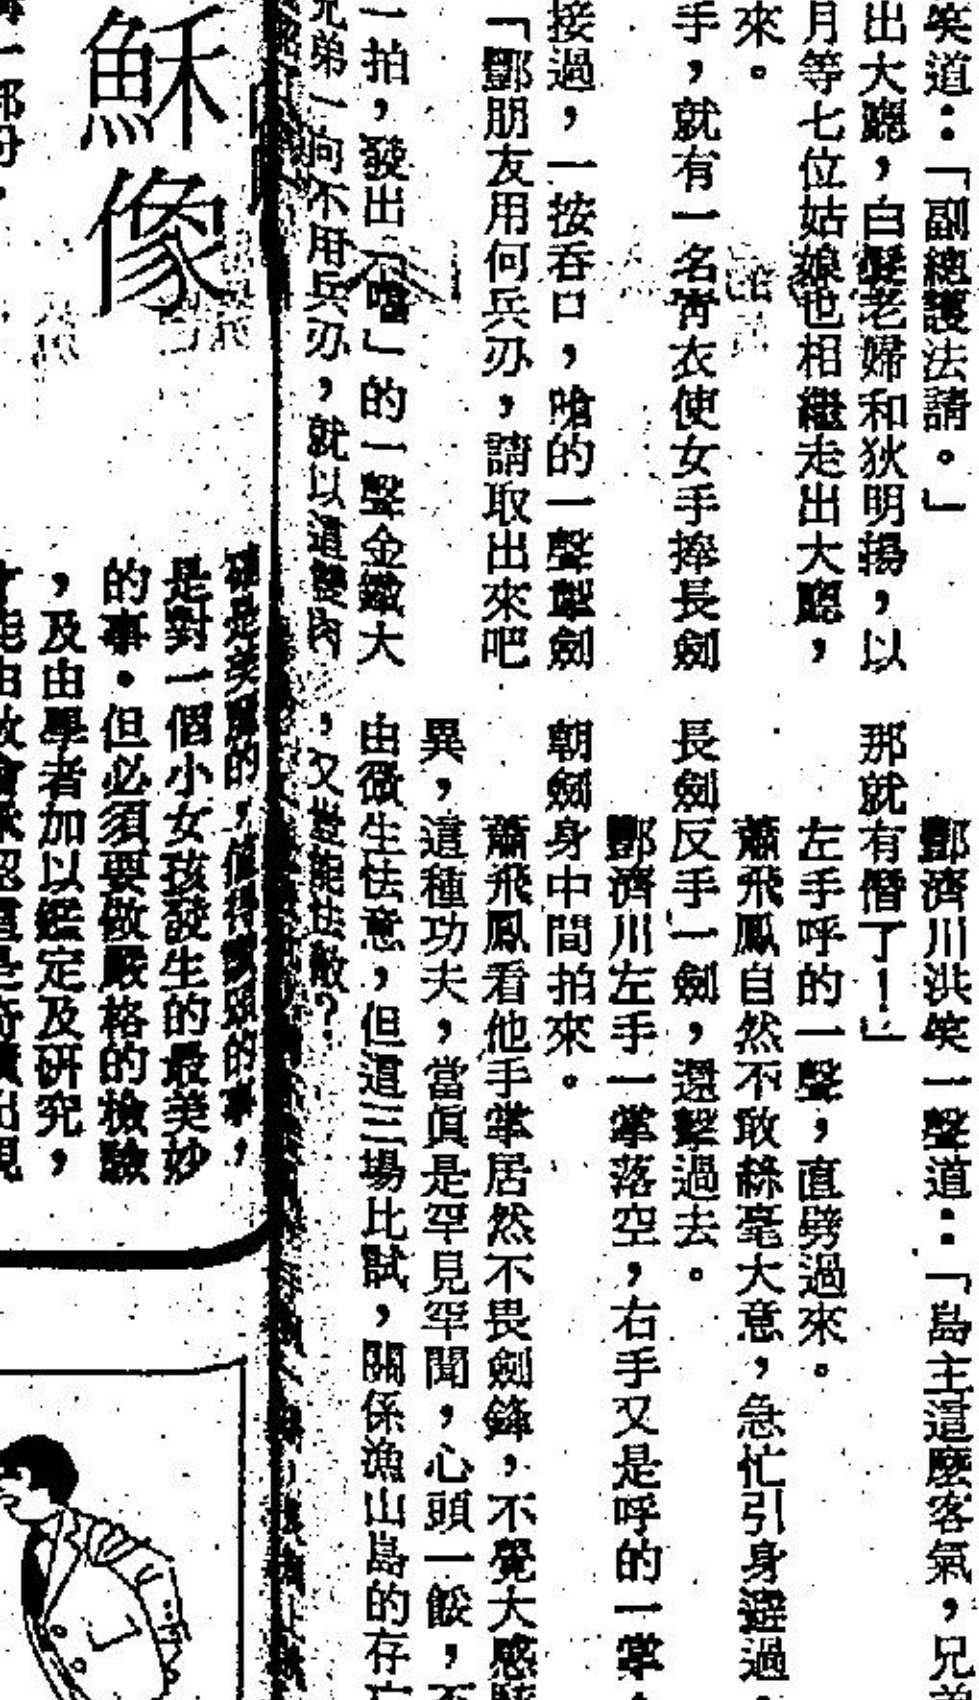 笑道：「副總護法請。」
出大廳，白髮老婦和狄明揚，以
月等七位姑娘也相繼走出大廳，
來。
手，就有一名青衣使女手捧長劍
接過，一按吞口，嗆的一聲掣劍
「酆朋友用何兵刃，請取出來吧
一拍，發出「噹」的一聲金鐵大
兄弟一向不用兵刃，就以這雙肉
酆濟川洪笑一聲道：「島主這麼客氣，兄弟
那就有僭了！」
左手呼的一聲，直劈過來。
蕭飛鳳自然不敢絲毫大意，急忙引身避過，
長劍反手一劍，還擊過去。
酆濟川左手一掌落空，右手又是呼的一掌，
朝劍身中間拍來。
蕭飛鳳看他手掌居然不畏劍鋒，不覺大感駭
異，這種功夫，當真是罕見罕聞，心頭一餒，不
由微生怯意，但這三場比試，關係漁山島的存亡
，又豈能怯敵？
穌像
是對一個小女孩發生的最美妙
的事。但必須要做嚴格的檢驗
，及由學者加以鑑定及研究，